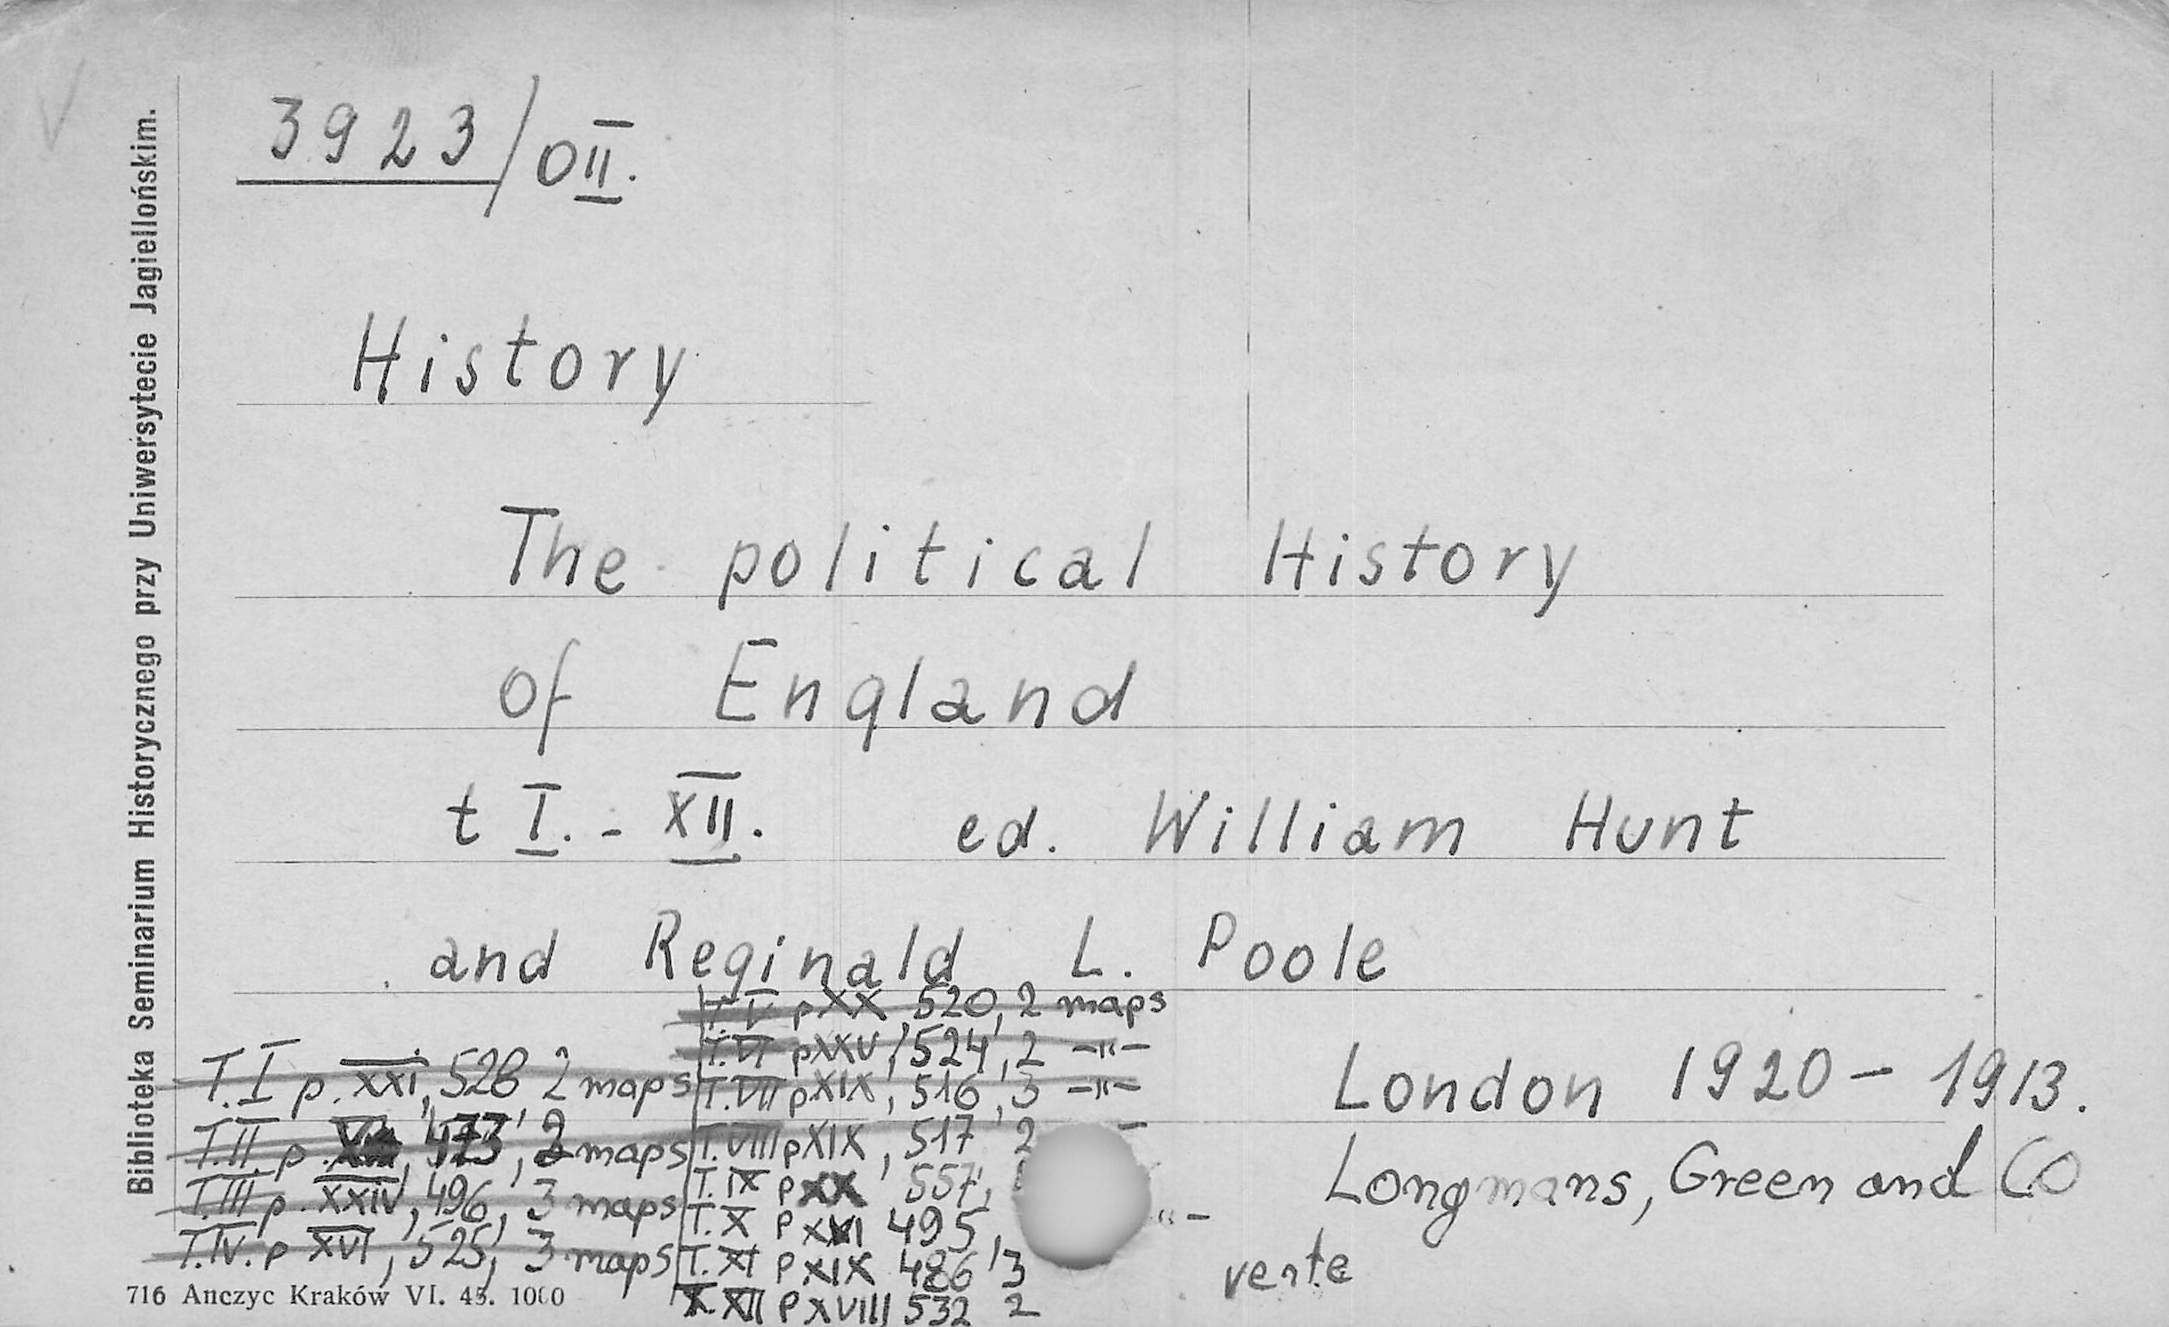 Biblioteka Seminarium Historycznego przy Uniwersytecie Jagiellońskim.
3923/OII.
History
The political History
of England
t I. - XII. ed. William Hunt
and Reginald L. Poole
T. I p. XXI, 528 2 maps
T. II. p. 473, 2 maps
T. III p. XXIV, 496, 3 maps
T. IV. p XVI, 525, 3 maps
T. V p XX, 520, 2 maps
T. VI pXXV, 524, 2 -"-
T. VII pXIX, 516, 3 -"-
T. VIII pXIX, 517, 2 -
T. IX pXX, 557,
T. X p XXI 495, "-
T. XI p XIX 486, 3
T. XII p XVIII 532 2
London 1920 - 1913.
Longmans, Green and Co
verte
716 Anczyc Kraków VI. 45. 1000